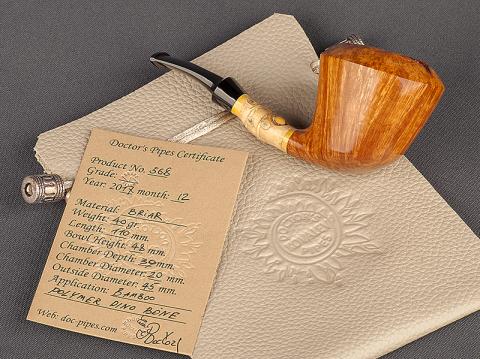 Doctor's Pipes Certificate
Product No. 568
Grade:
Year: 2017 month: 12
Material: BRIAR
Weight: 40 gr.
Length: 110 mm.
Bowl Height: 48 mm.
Chamber Depth: 39 mm.
Chamber Diameter: 20 mm.
Outside Diameter: 45 mm.
Application: BAMBOO
POLYMER DINO BONE
Web: doc-pipes.com